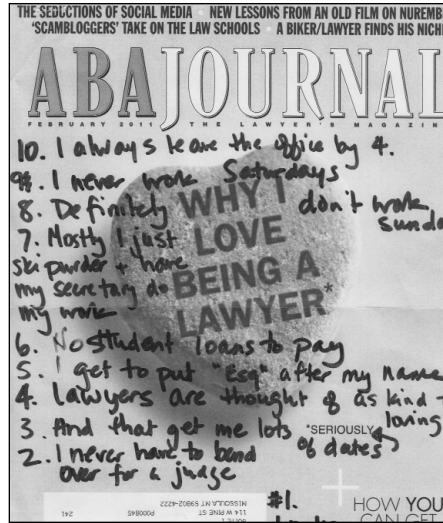 THE SEDUCTIONS OF SOCIAL MEDIA NEW LESSONS FROM AN OLD FILM ON NUREMB
'SCAMBLOGGERS' TAKE ON THE LAW SCHOOLS A BIKER/LAWYER FINDS HIS NICH
ABA JOURNAL
FEBRUARY 2011 THE LAWYER'S MAGAZIN
10. I always leave the office by 4.
9. I never work Saturdays
8. Definitely don't work Sunda
7. Mostly I just
ski purder + have
my secretary do
my work
WHY I
LOVE
BEING A
LAWYER*
6. No student loans to pay
5. I get to put "Esq" after my name
4. Lawyers are thought of as kind +
loving
3. And that get me lots of dates
*SERIOUSLY
2. I never have to bend
over for a judge
#1.
MISSOULA NT 59802-4222
114 W PINE ST
P000845
241
HOW YOU
CAN GET